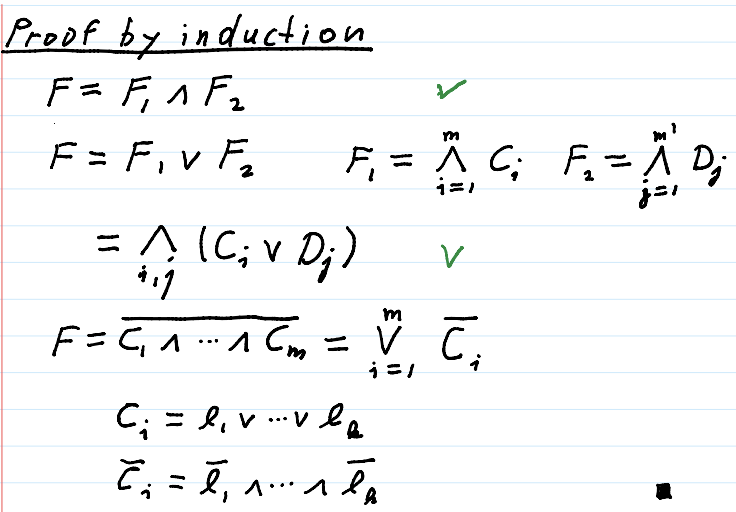 Proof by induction
F = F₁ ∧ F₂ ✓
F = F₁ ∨ F₂ F₁ = ⋀ᵢ₌₁ᵐ Cᵢ F₂ = ⋀ⱼ₌₁ᵐ' Dⱼ
= ⋀ᵢ,ⱼ (Cᵢ ∨ Dⱼ) ✓
F = \overline{C₁ ∧ ⋯ ∧ Cₘ} = ⋁ᵢ₌₁ᵐ \overline{Cᵢ}
Cᵢ = ℓ₁ ∨ ⋯ ∨ ℓₖ
\overline{Cᵢ} = \overline{ℓ₁} ∧ ⋯ ∧ \overline{ℓₖ} ■